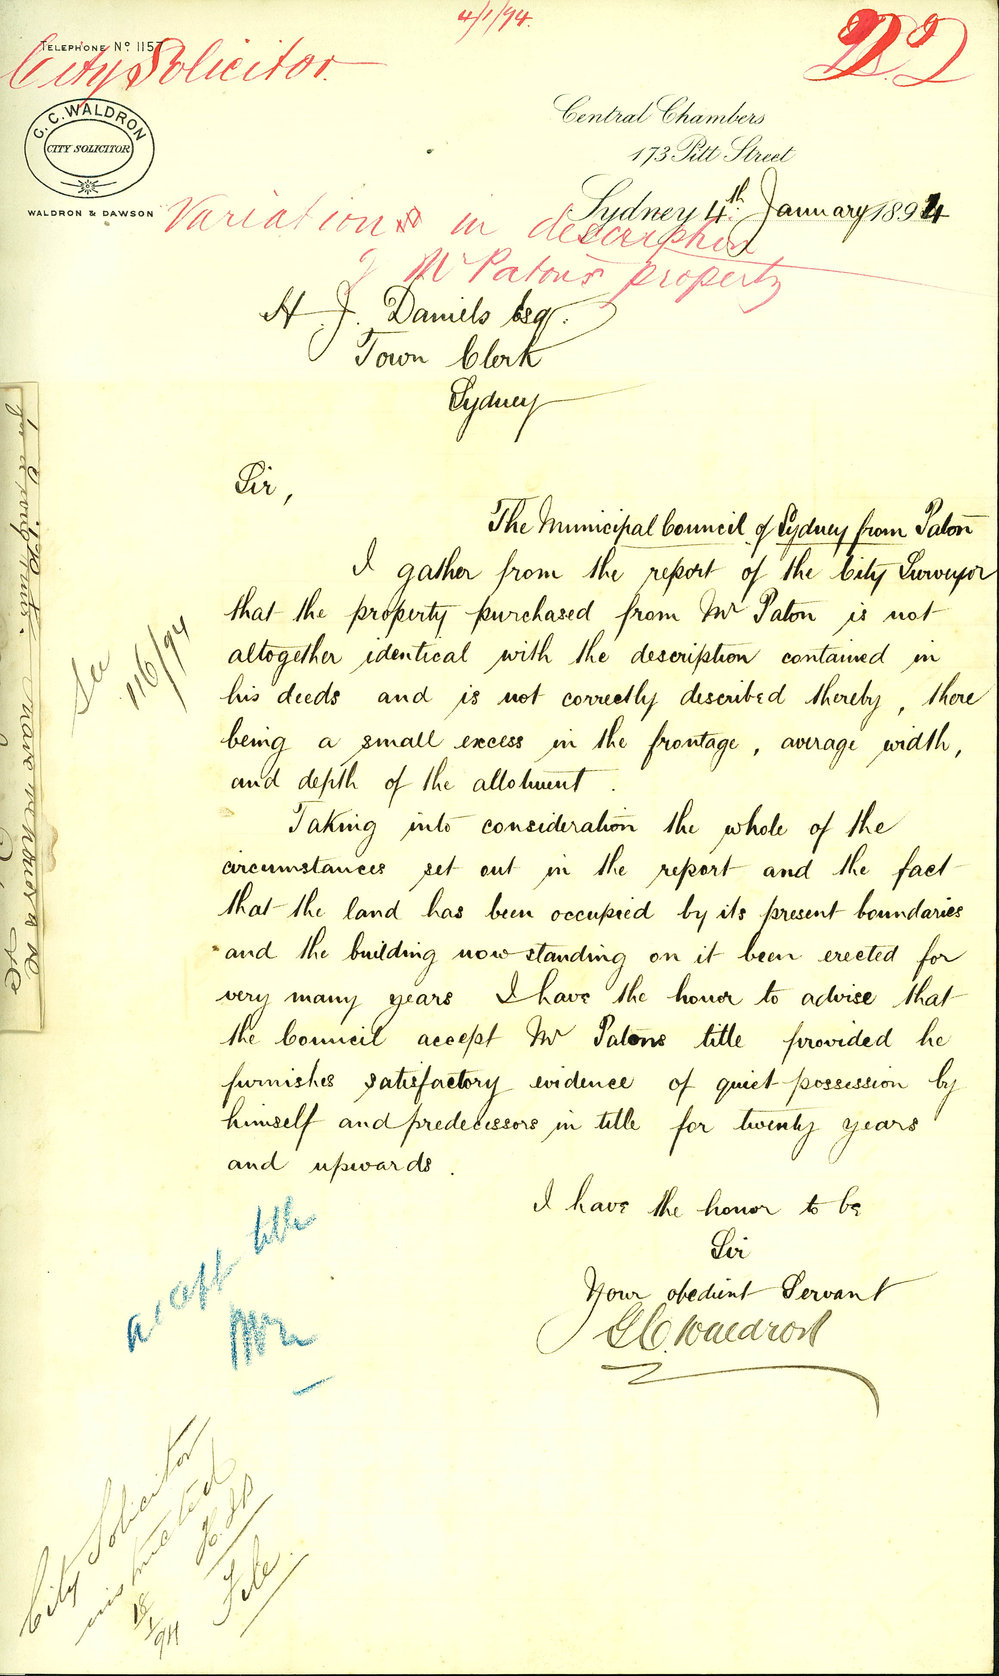 4/1/94.
TELEPHONE No 1157
City Solicitor.
22
G. C. WALDRON
CITY SOLICITOR
WALDRON & DAWSON
Central Chambers
173 Pitt Street
Sydney 4th January 1894
Variations in description
of Mr Patons property
H. J. Daniels Esq.
Town Clerk
Sydney
Sir,
The Municipal Council of Sydney from Paton
I gather from the report of the City Surveyor
that the property purchased from Mr Paton is not
altogether identical with the description contained in
his deeds and is not correctly described thereby, there
being a small excess in the frontage, average width,
and depth of the allotment.
Taking into consideration the whole of the
circumstances set out in the report and the fact
that the land has been occupied by its present boundaries
and the building now standing on it been erected for
very many years I have the honor to advise that
the Council accept Mr Patons title provided he
furnishes satisfactory evidence of quiet possession by
himself and predecessors in title for twenty years
and upwards.
I have the honor to be
Sir
Your obedient Servant
G C. Waldron
See
116/94
accept title
City Solicitor
instructed
18/1/94
File